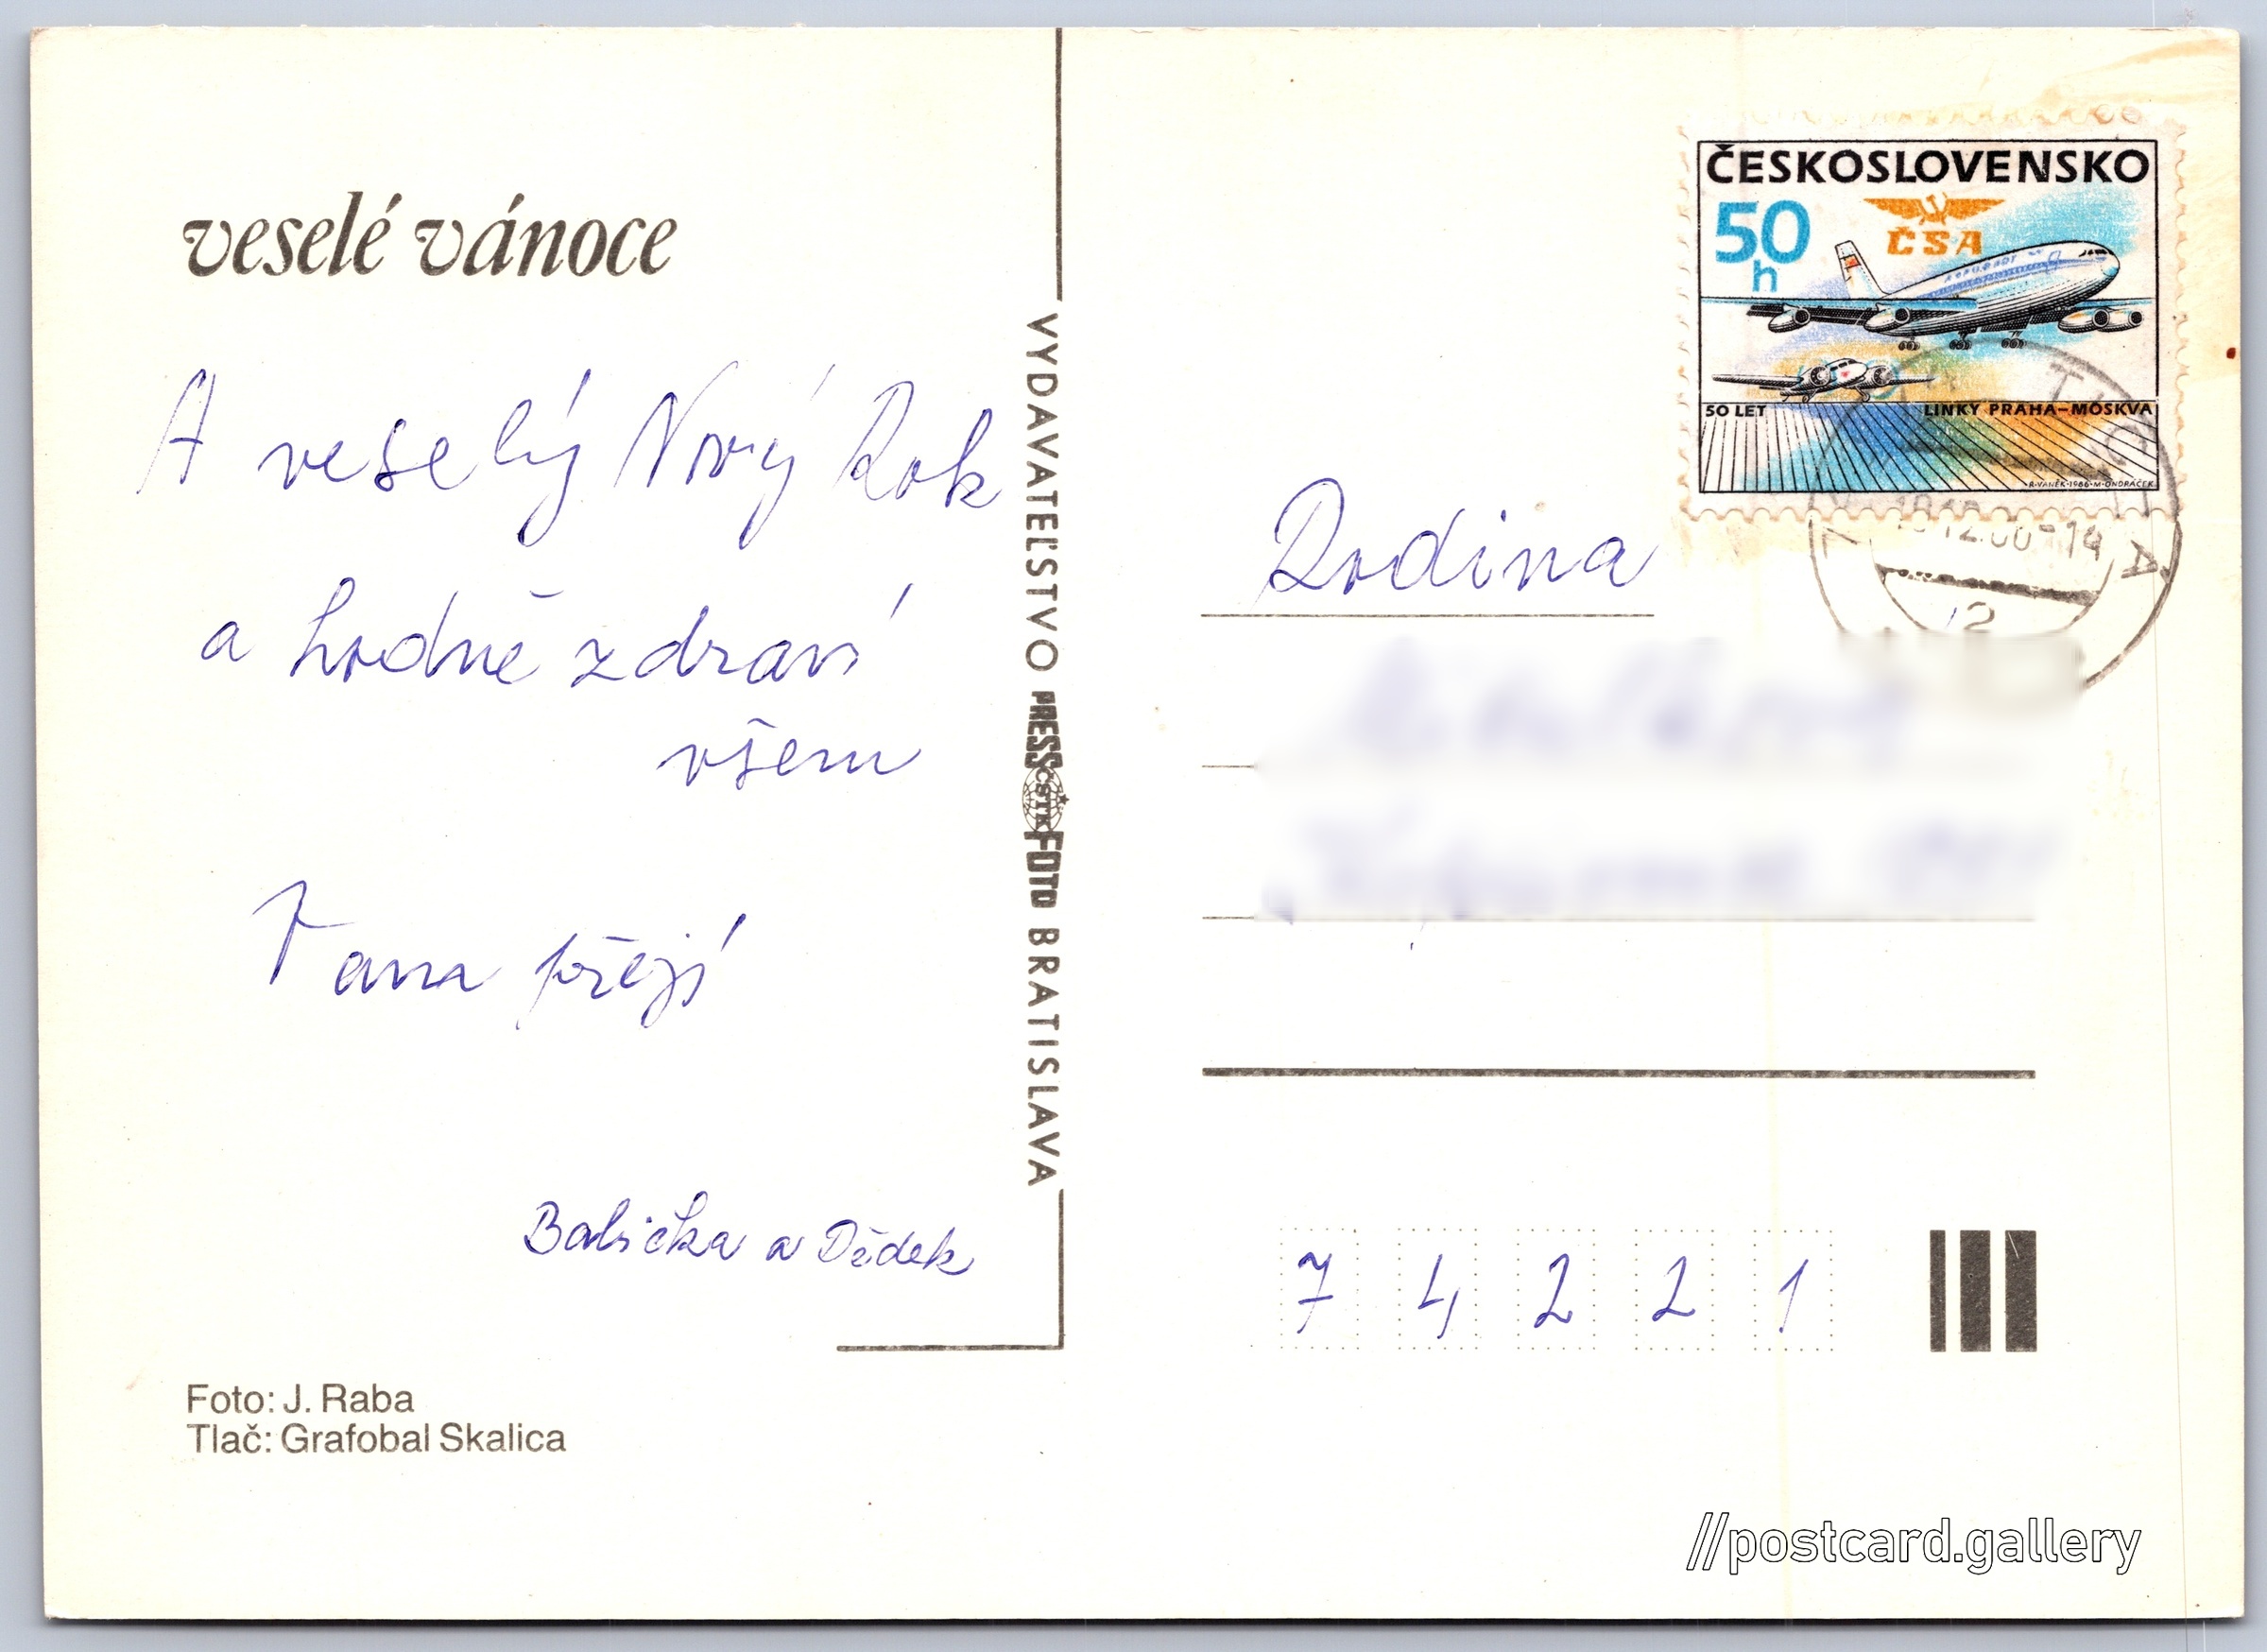 veselé vánoce
A veselý Nový Rok
a hodně zdraví
všem
Vám přejí
Babička a Dědek
Foto: J. Raba
Tlač: Grafobal Skalica
VYDAVATEĽSTVO PRESSFOTO BRATISLAVA
ČSTK
ČESKOSLOVENSKO
50
h
ČSA
50 LET LINKY PRAHA–MOSKVA
R.VANĚK·1986·M.ONDRÁČEK
Rodina
7 4 2 2 1
//postcard.gallery